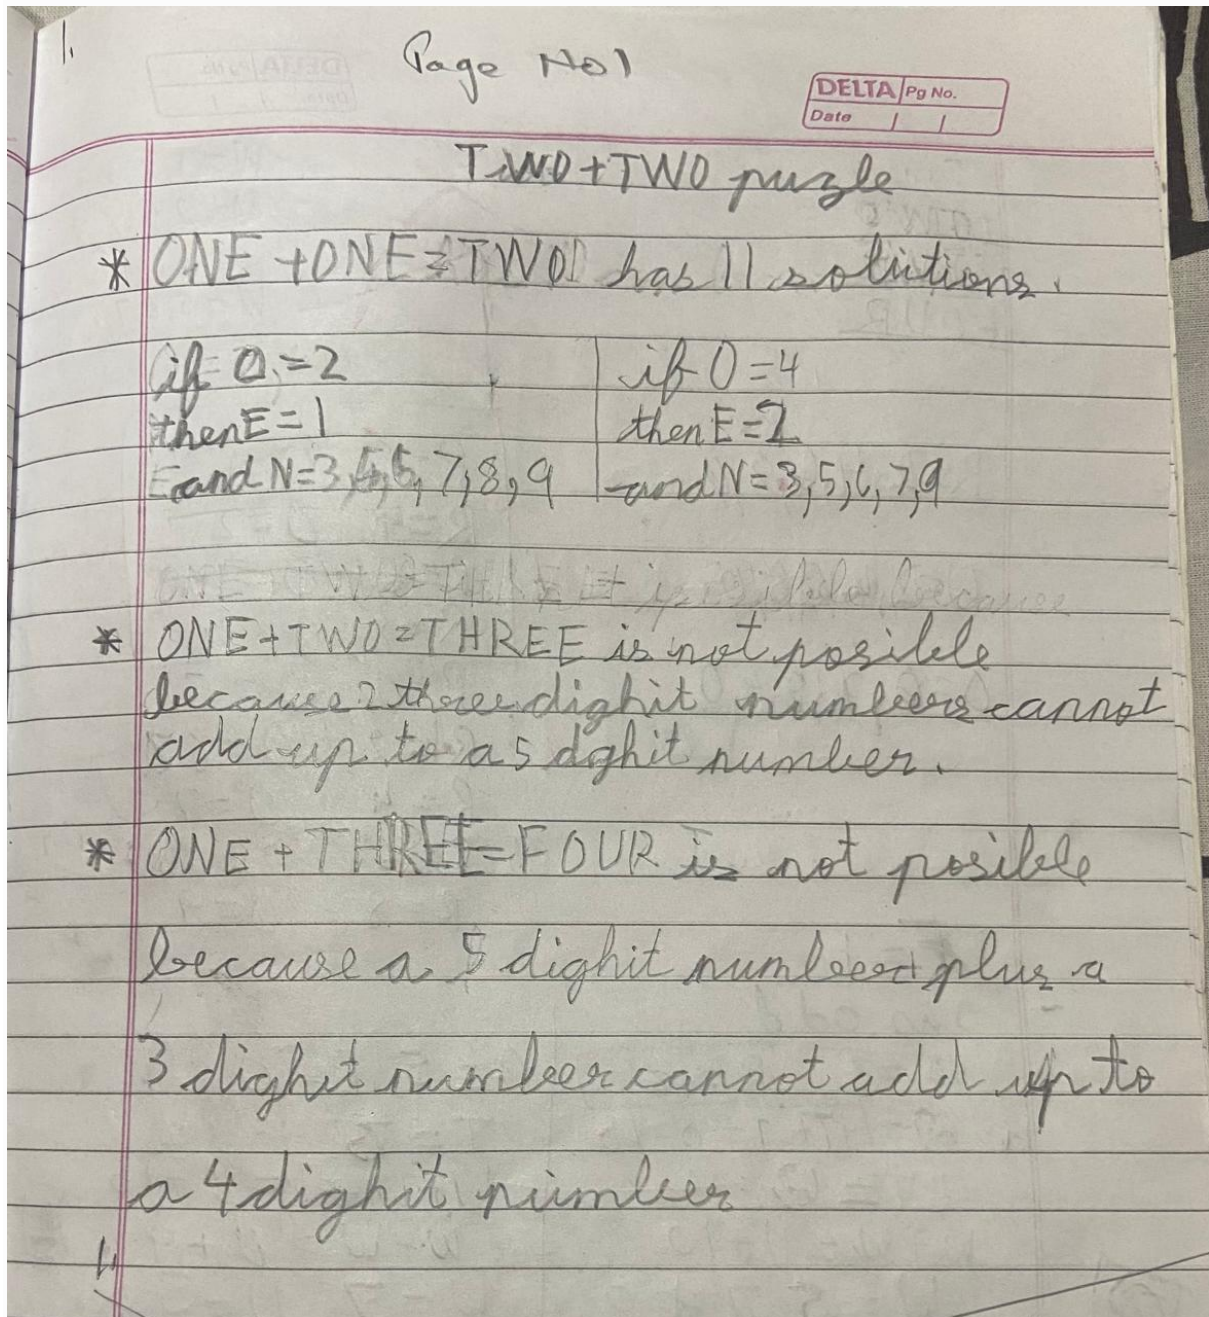 1.
Page No 1
DELTA Pg No.
Date / /
TWO+TWO puzle
* ONE +ONE=TWO has 11 solutions.
if O=2
then E=1
and N=3,4,6,7,8,9
if O=4
then E=2
and N=3,5,6,7,9
* ONE+TWO=THREE is not posible
because 2 three dighit numbers cannot
add up to a 5 dghit number.
* ONE + THREE=FOUR is not posible
because a 5 dighit number plus a
3 dighit number cannot add up to
a 4 dighit number